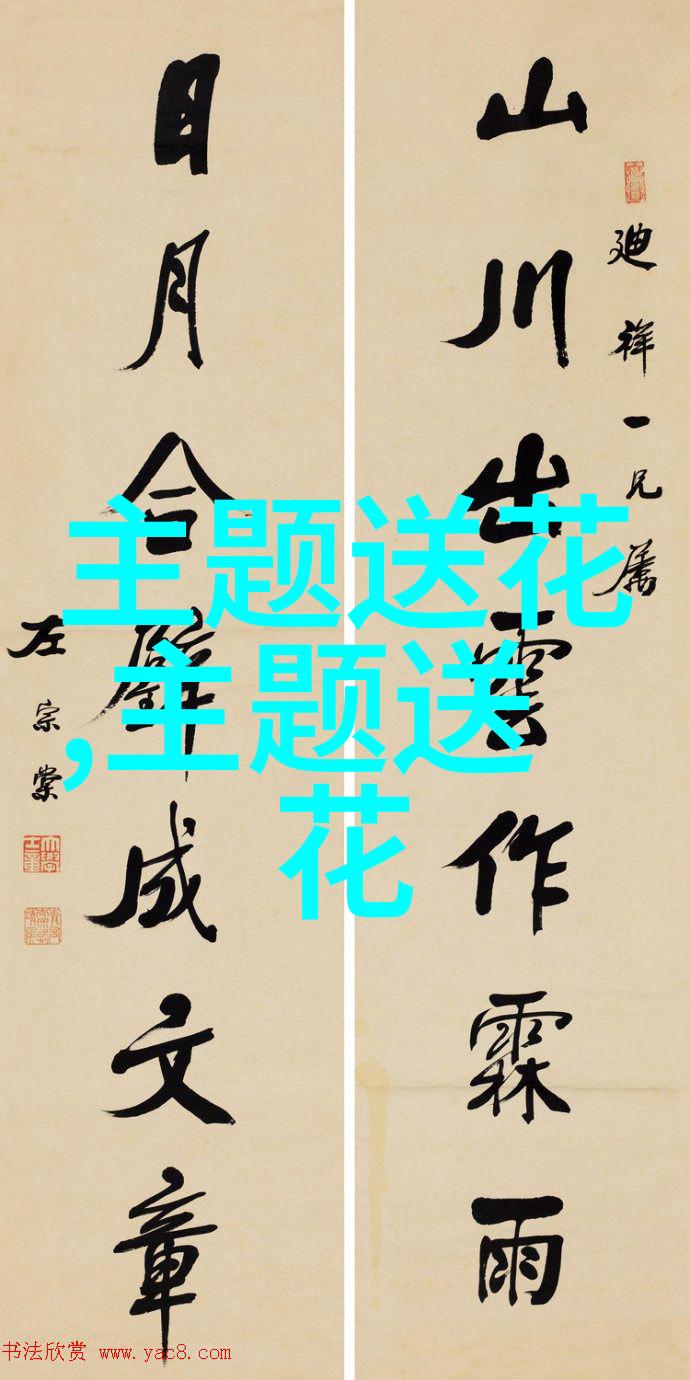 山川出雲作霖雨
廸祥一兄属
日月合璧成文章
左宗棠
主题送花
,主题送
花
书法欣赏 www.yac8.com